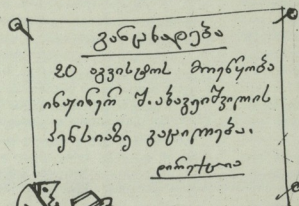 განცხადება
20 აგვისტოს მოეწყობა
ინჟინერ შ. აბაგეიშვილის
პენსიაზე გაცილება.
დირექცია